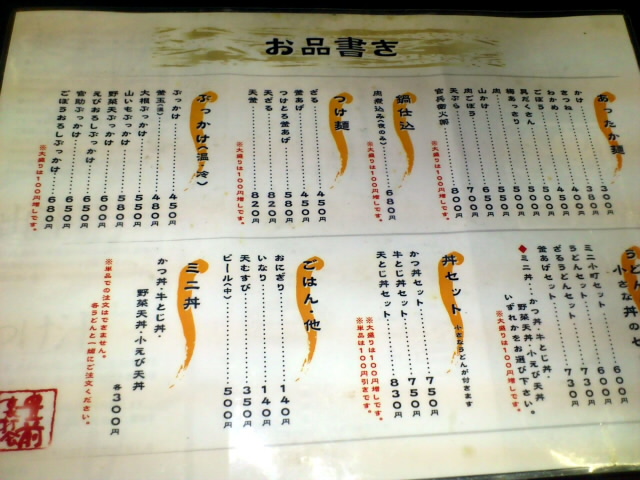 お品書き
あったか麺
かけ 300円
きつね 380円
わかめ 400円
ごぼう 450円
具だくさん 500円
梅あっさり 500円
肉 500円
山かけ 550円
肉ごぼう 650円
天ぷら 700円
官兵衛火鍋 800円
※大盛りは100円増しです。
鍋仕込
肉煮込み(冬のみ) 680円
※大盛りは100円増しです。
つけ麺
ざる 450円
釜あげ 450円
つけとろ釜あげ 580円
天ざる 820円
天釜 820円
※大盛りは100円増しです。
ぶっかけ(温・冷)
ぶっかけ 450円
釜玉(温) 480円
大根ぶっかけ 550円
山いもぶっかけ 580円
野菜天ぶっかけ 600円
えびおろしぶっかけ 650円
官助ぶっかけ 650円
ごぼうおろしぶっかけ 680円
※大盛りは100円増しです。
うどん
小さな丼のセ
600円
ミニ小町セット 600円
うどんセット 730円
ざるうどんセット 730円
釜あげセット 730円
◆ミニ丼‥かつ丼・牛とじ丼・
野菜天丼・小えび天丼
いずれかをお選び下さい。
※大盛りは100円増しです。
丼セット 小さなうどんが付きます
かつ丼セット 750円
牛とじ丼セット 750円
天とじ丼セット 830円
※大盛りは100円増しです。
※単品は100円引きです。
ごはん・他
おにぎり 140円
いなり 140円
天むすび 350円
ビール(中) 500円
ミニ丼
かつ丼・牛とじ丼・
野菜天丼・小えび天丼
各300円
※単品での注文はできません。
各うどんと一緒にご注文ください。